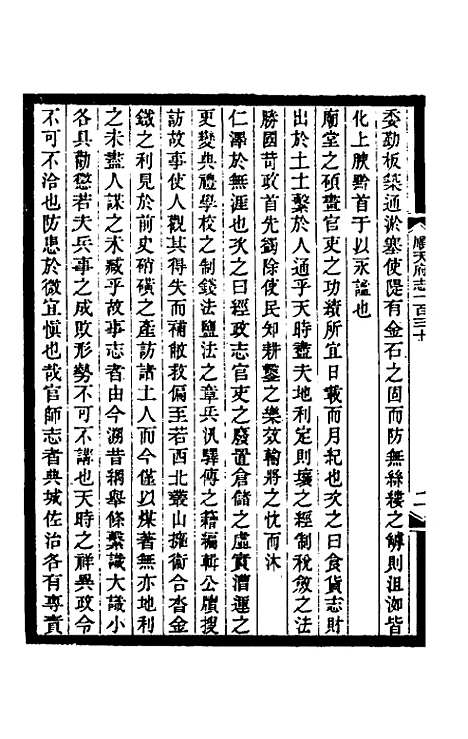 委勤板築通淤塞使隄有金石之固而防無絲縷之罅則沮洳皆
化上腴黔首于以永謐也
廟堂之碩畫官吏之功績所宜日載而月紀也次之曰食貨志財
出於土土繫於人通乎天時盡夫地利定則壤之經制稅斂之法
勝國苛政首先劉除使民知耕鑿之樂效輸將之忱而沐
仁澤於無涯也次之曰經政志官吏之廢置倉儲之虛實漕運之
更變典禮學校之制錢法鹽法之章兵汛驛傳之籍編輯公牘搜
訪故事使人觀其得失而補敝救偏至若西北叢山擁衛合沓金
鐵之利見於前史硝磺之產訪諸土人而今僅以煤著無亦地利
之未盡人謀之未臧乎故事志者由今溯昔網舉條繫識大識小
各具勸懲若夫兵事之成敗形勢不可不講也天時之祥異政令
不可不洽也防患於微宜愼也哉官師志者典城佐治各有專責
順天府志一百三十
二